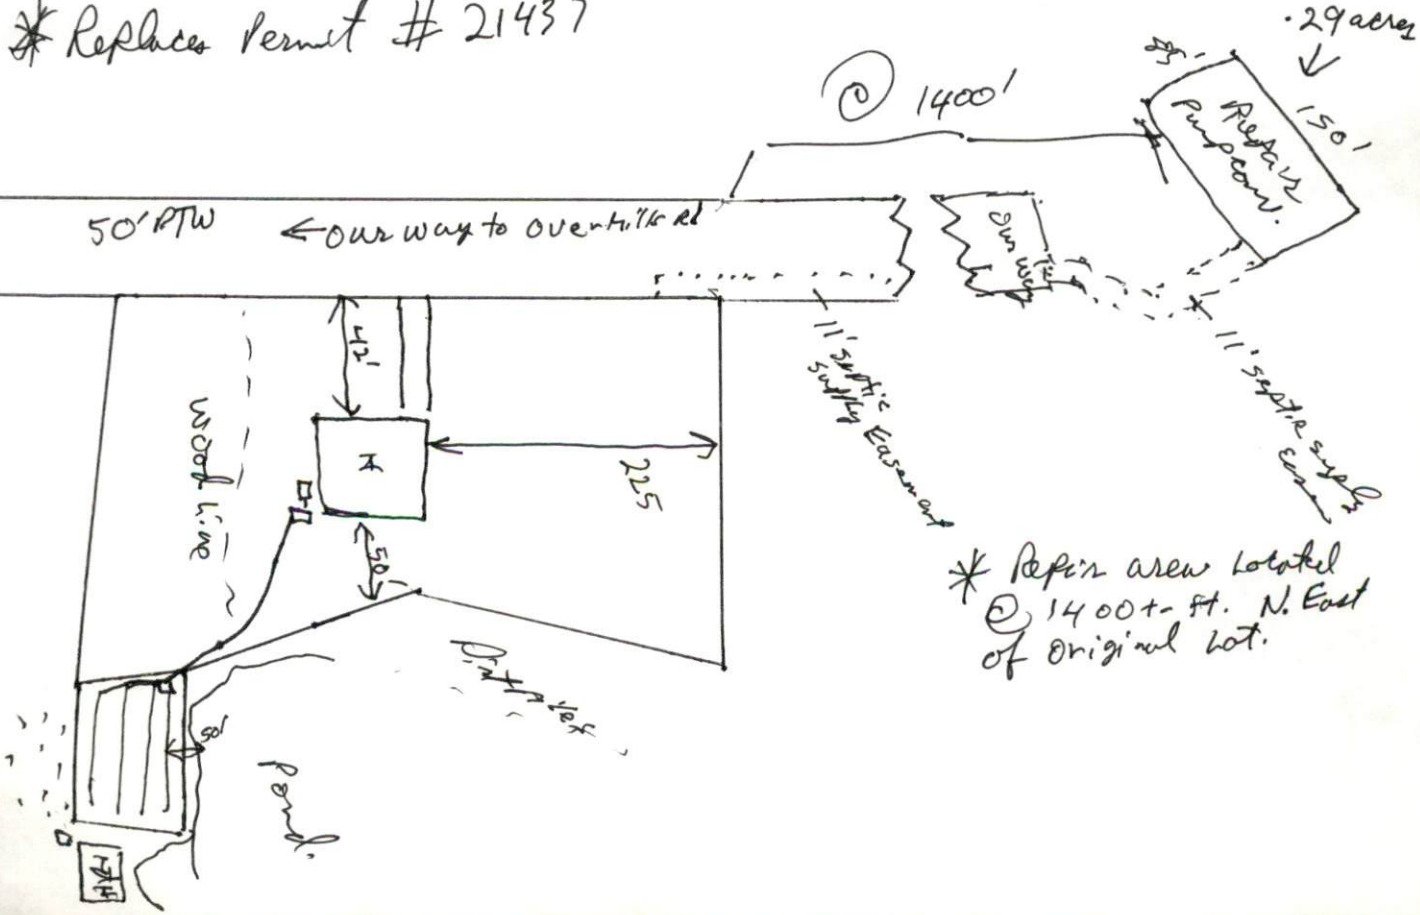 * Replaces Permit # 21437
.29 acres
@ 1400'
150'
Repair
Pump conv.
50' RTW
← our way to overhills Rd
our way
42'
11' septic
supply Easement
11' septic supply
Easem
wood line
225
50'
* Repir area Located
@ 1400 +- ft. N. East
of original Lot.
50'
Pond.